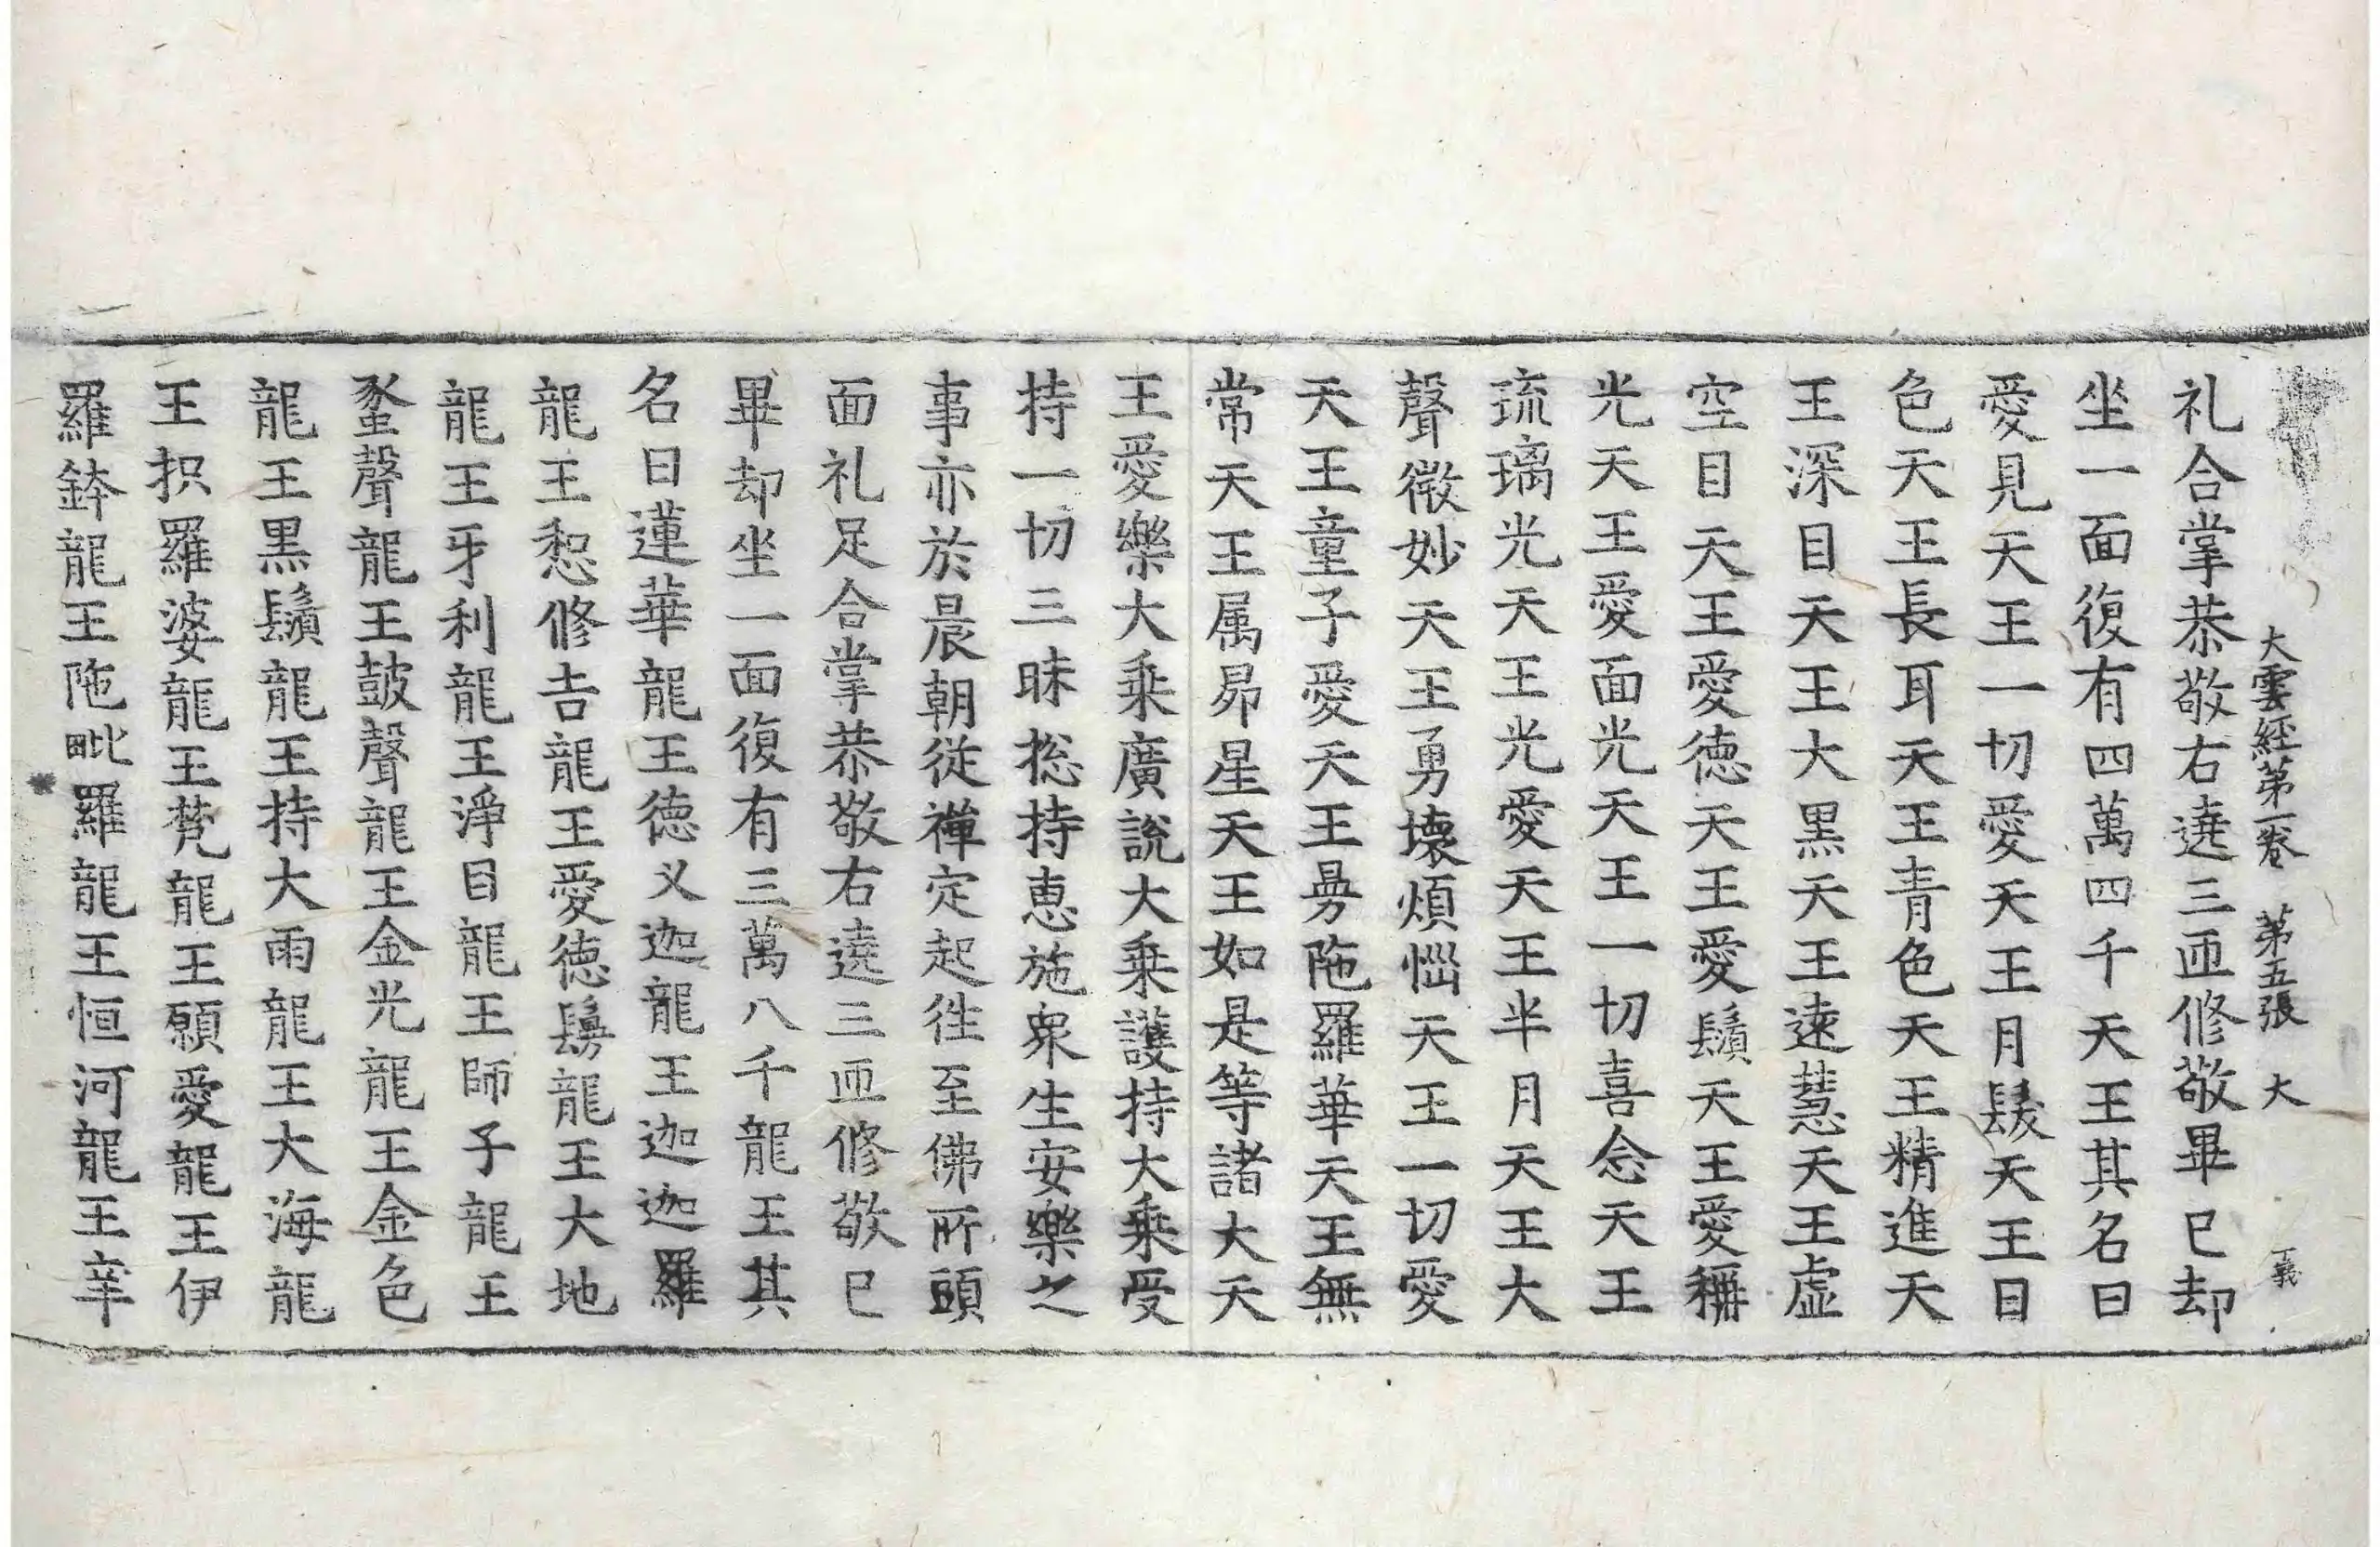 大雲經第一卷　第五張　大　義
礼合掌恭敬右遶三匝修敬畢已却
坐一面復有四萬四千天王其名曰
愛見天王一切愛天王月髮天王目
色天王長耳天王青色天王精進天
王深目天王大黒天王遠慧天王虛
空目天王愛徳天王愛鬚天王愛稱
光天王愛面光天王一切喜念天王
琉璃光天王光愛天王半月天王大
聲微妙天王勇壞煩惱天王一切愛
天王童子愛天王曼陁羅華天王無
常天王属昴星天王如是等諸大天
王愛樂大乗廣說大乗護持大乗受
持一切三昧捴持恵施衆生安樂之
事亦於晨朝従禪定起往至佛所頭
面礼足合掌恭敬右遶三匝修敬已
畢却坐一面復有三萬八千龍王其
名曰蓮華龍王徳义迦龍王迦迦羅
龍王惒修吉龍王愛徳鬘龍王大地
龍王牙利龍王淨目龍王師子龍王
蝥聲龍王鼓聲龍王金光龍王金色
龍王黒鬚龍王持大雨龍王大海龍
王抧羅婆龍王梵龍王願愛龍王伊
羅鉢龍王陁毗羅龍王恒河龍王辛